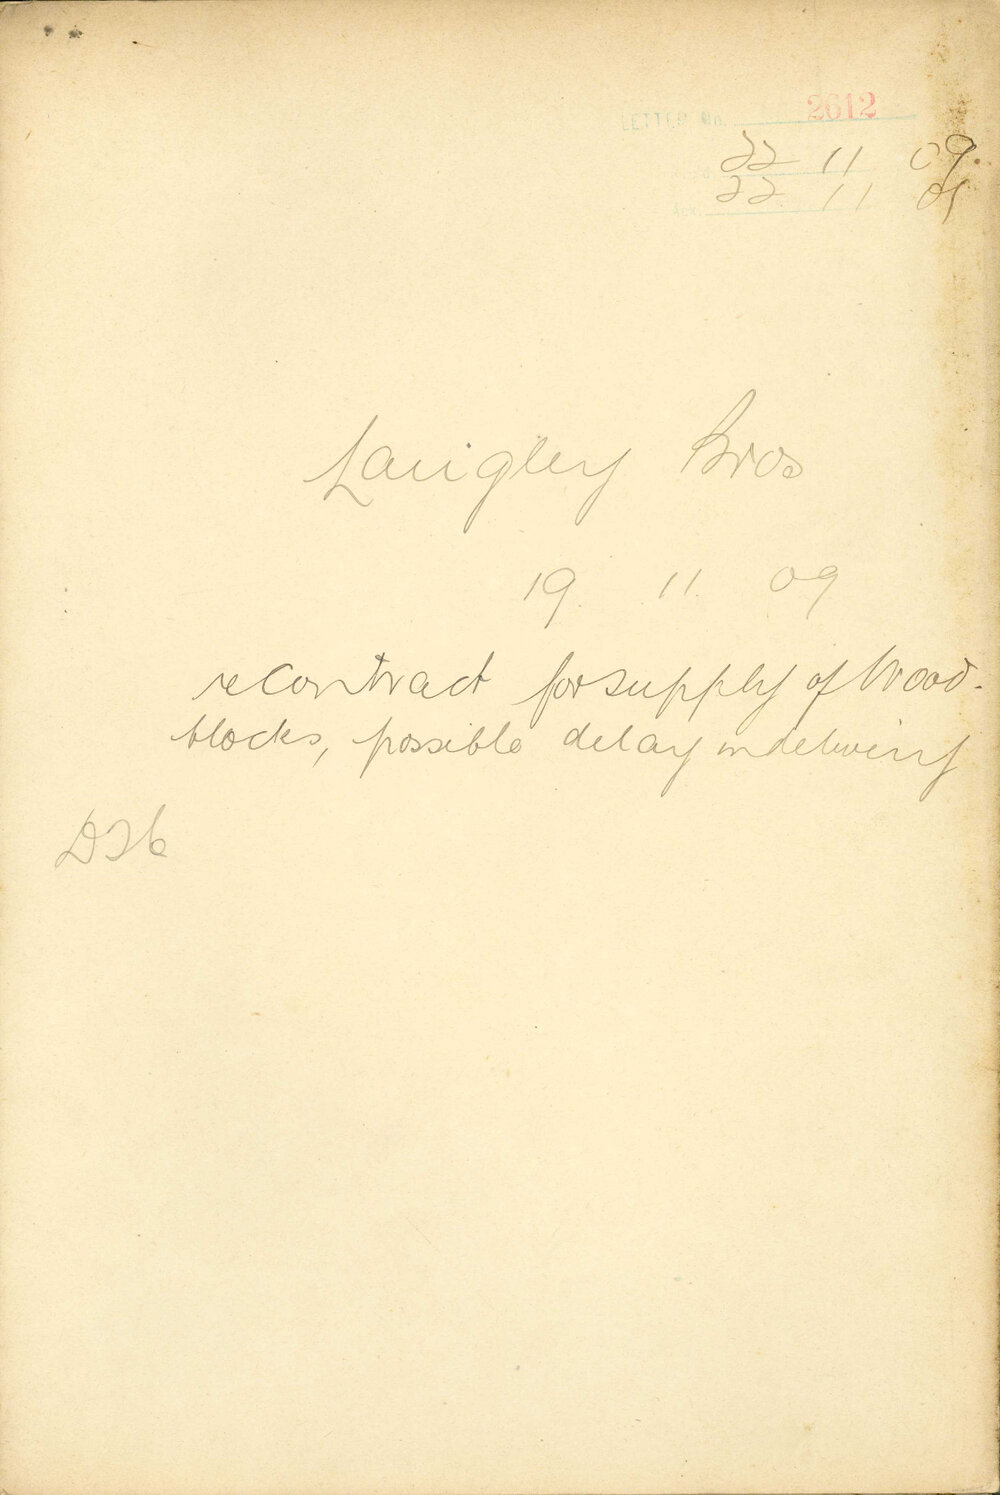 LETTER No. 2612
22 11 09.
Ack. 22 11 09
Langley Bros
19. 11. 09
re Contract for supply of Wood-
blocks, possible delay in delivery